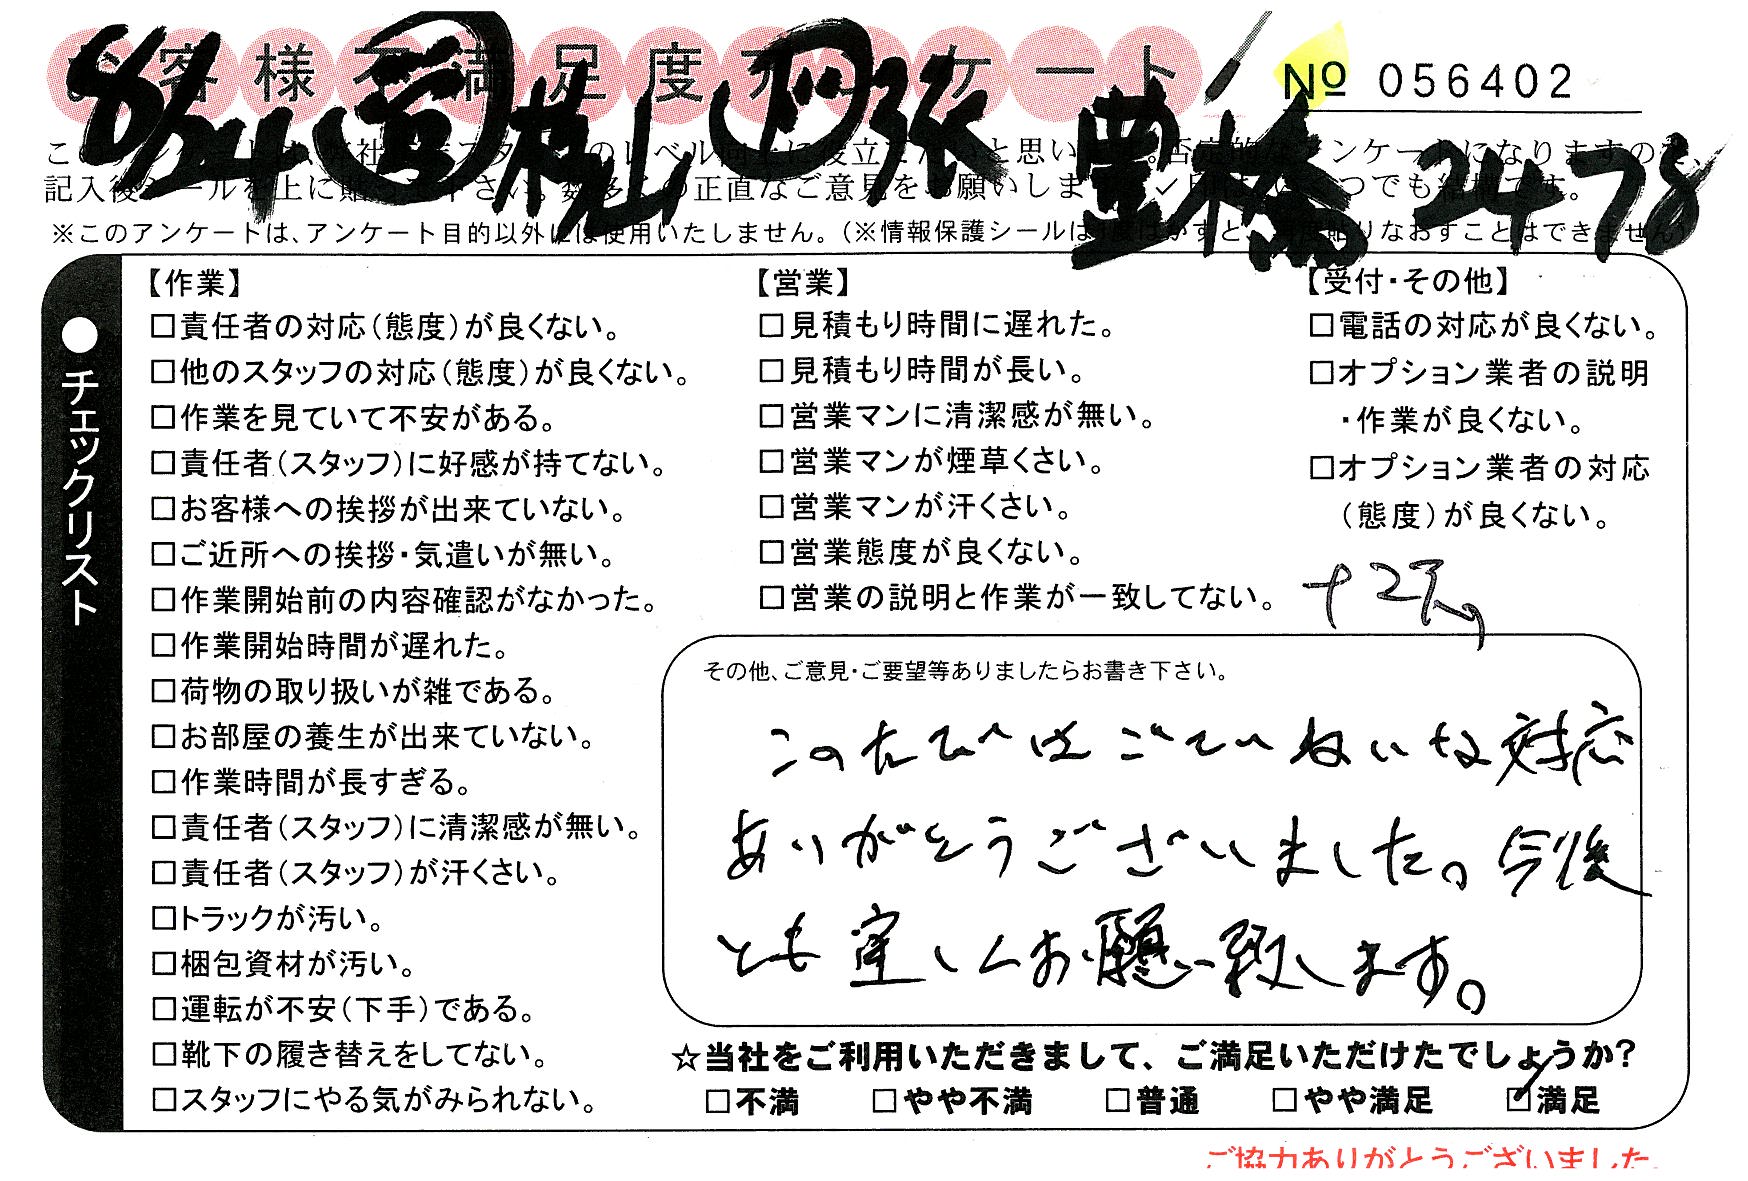 お客様不満足度アンケート
No 056402
8/24 豊橋 2478
※このアンケートは、アンケート目的以外には使用いたしません。(※情報保護シールは
●チェックリスト
【作業】
□責任者の対応(態度)が良くない。
□他のスタッフの対応(態度)が良くない。
□作業を見ていて不安がある。
□責任者(スタッフ)に好感が持てない。
□お客様への挨拶が出来ていない。
□ご近所への挨拶・気遣いが無い。
□作業開始前の内容確認がなかった。
□作業開始時間が遅れた。
□荷物の取り扱いが雑である。
□お部屋の養生が出来ていない。
□作業時間が長すぎる。
□責任者(スタッフ)に清潔感が無い。
□責任者(スタッフ)が汗くさい。
□トラックが汚い。
□梱包資材が汚い。
□運転が不安(下手)である。
□靴下の履き替えをしてない。
□スタッフにやる気がみられない。
【営業】
□見積もり時間に遅れた。
□見積もり時間が長い。
□営業マンに清潔感が無い。
□営業マンが煙草くさい。
□営業マンが汗くさい。
□営業態度が良くない。
□営業の説明と作業が一致してない。
【受付・その他】
□電話の対応が良くない。
□オプション業者の説明
・作業が良くない。
□オプション業者の対応
(態度)が良くない。
その他、ご意見・ご要望等ありましたらお書き下さい。
このたびはごていねいな対応
ありがとうございました。今後
とも宜しくお願い致します。
☆当社をご利用いただきまして、ご満足いただけたでしょうか?
□不満 □やや不満 □普通 □やや満足 ☑満足
ご協力ありがとうございました。